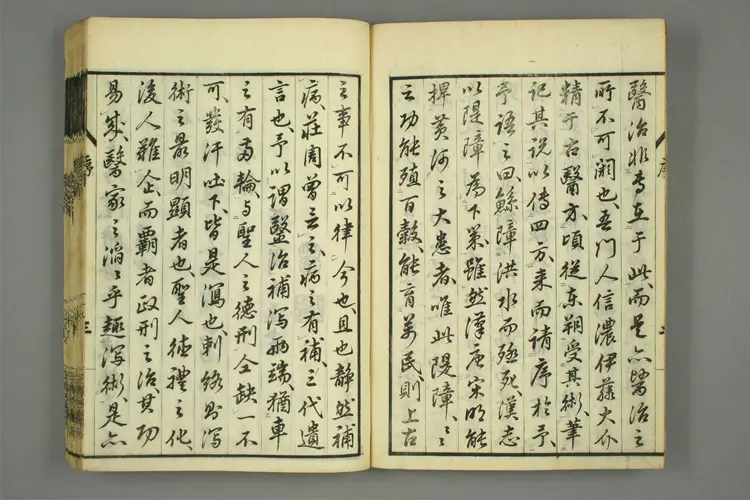 醫治非專在于此而是亦醫治之
所不可闕也吾門人信濃伊藤大介
精于古醫方頃從東朔受其術筆
記其說以傳四方来而請序於予
予語之曰鯀障洪水而殛死漢志
以隄障為下策雖然漢唐宋明能
捍黃河之大患者唯此隄障々々
之功能殖百穀能育萬民則上古
之事不可以律今也且也靜然補
病莊周曾云之病之有補三代遺
言也予以謂毉治補瀉兩端猶車
之有兩輪与聖人之德刑仝缺一不
可發汗吐下皆是瀉也刺絡則瀉
術之最明顯者也聖人德禮之化
後人難企而覇者政刑之治其功
易成醫家之滔々乎趣瀉術是亦
序
三